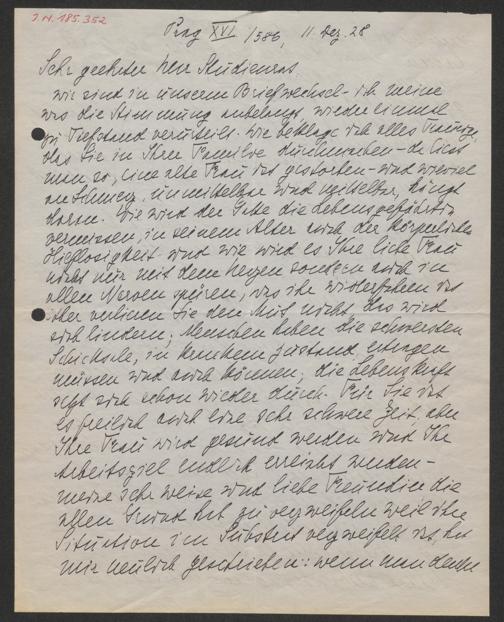 J.N. 185.352
Prag XVI /586, 11. Dez. 28
Sehr geehrter Herr Studienrat,
wir sind in unserem Briefwechsel - ich meine
was die Stimmung anbelangt, wieder einmal
zu Tiefstand verurteilt. Wie beklage ich alles Traurige,
das Sie in Ihrer Familie durchmachen - da liest
man so, eine alte Frau ist gestorben - und wieviel
an Schmerz, unmittelbar und mittelbar, hängt
daran. Wie wird der Gatte die Lebensgefährtin
vermissen, in seinem Alter auch der körperlichen
Hilflosigkeit und wie wird es Ihre liebe Frau
nicht nur mit dem Herzen sondern auch in
allen Nerven spüren, was ihr widerfahren ist
Aber verlieren Sie den Mut nicht, das wird
sich lindern; Menschen haben die schwersten
Schicksale, in krankem Zustand, ertragen
müssen und auch können; die Lebenskraft
setzt sich schon wieder durch. Für Sie ist
es freilich auch eine sehr schwere Zeit, aber
Ihre Frau wird gesund werden und Ihr
Arbeitsziel endlich erreicht werden -
meine sehr weise und liebe Freundin die
allen Grund hat zu verzweifeln weil ihre
Situation im Substrat verzweifelt ist, hat
mir neulich geschrieben: wenn man denke